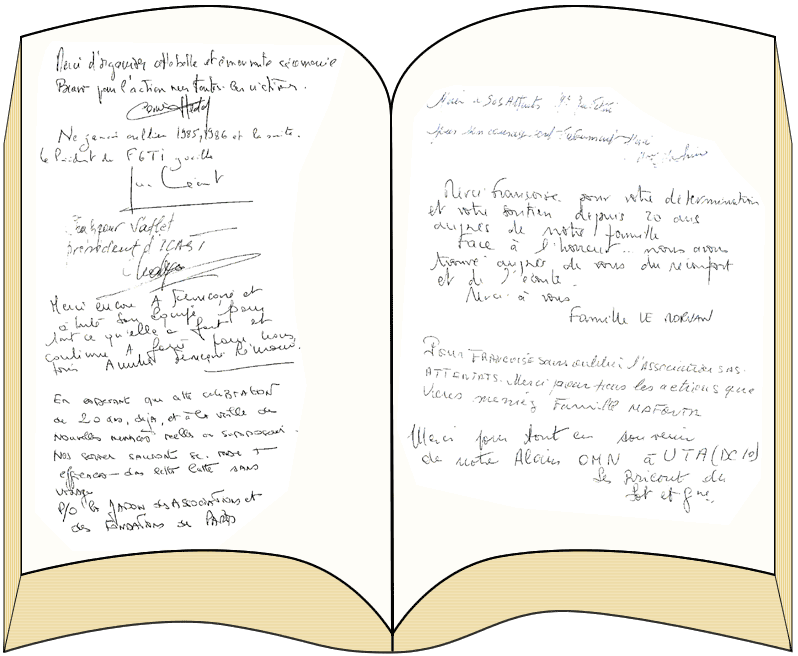 Merci d'organiser cette belle et émouvante cérémonie
Bravo pour l'action vers toutes les victimes.
Ne jamais oublier 1985, 1986 et la suite.
le Président du FGTI
président d'
Merci encore A Françoise et
à toute son équipe pour
tout ce qu'elle a fait et
continue A faire pour nous
tous
En espérant que cette célébration
de 20 ans, déjà, et à la veille de
nouvelles menaces réelles ou supposées.
Nos
efficaces dans cette lutte sans
visage
P/O le Jardin des Associations et
des Fondations de Paris
Merci à SOS Attentats
Merci Françoise pour votre détermination
et votre soutien depuis 20 ans
auprès de notre famille
Face à l'horreur... nous avons
trouvé auprès de vous du réconfort
et de l'écoute.
Merci à vous.
Famille LE MORVAN
Pour FRANCOISE sans oublier l'Association SOS.
ATTENTATS. Merci pour tous les actions que
Vous menez Famille
Merci pour tout en souvenir
de notre Alain OMN à UTA (DC10)
Les Bricout du
Lot et Gne.